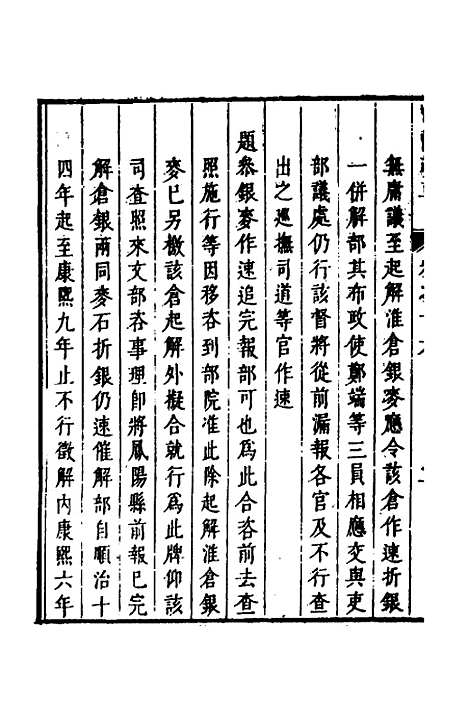 無庸議至起解淮倉銀麥應令該倉作速折銀
一併解部其布政使鄭端等三員相應交與吏
部議處仍行該督將從前漏報各官及不行查
出之巡撫司道等官作速
題叅銀麥作速追完報部可也為此合咨前去查
照施行等因移咨到部院准此除起解淮倉銀
麥已另檄該倉起解外擬合就行為此牌仰該
司查照來文部咨事理即將鳳陽縣前報已完
解倉銀兩同麥石折銀仍速催解部自順治十
四年起至康熙九年止不行徵解內康熙六年